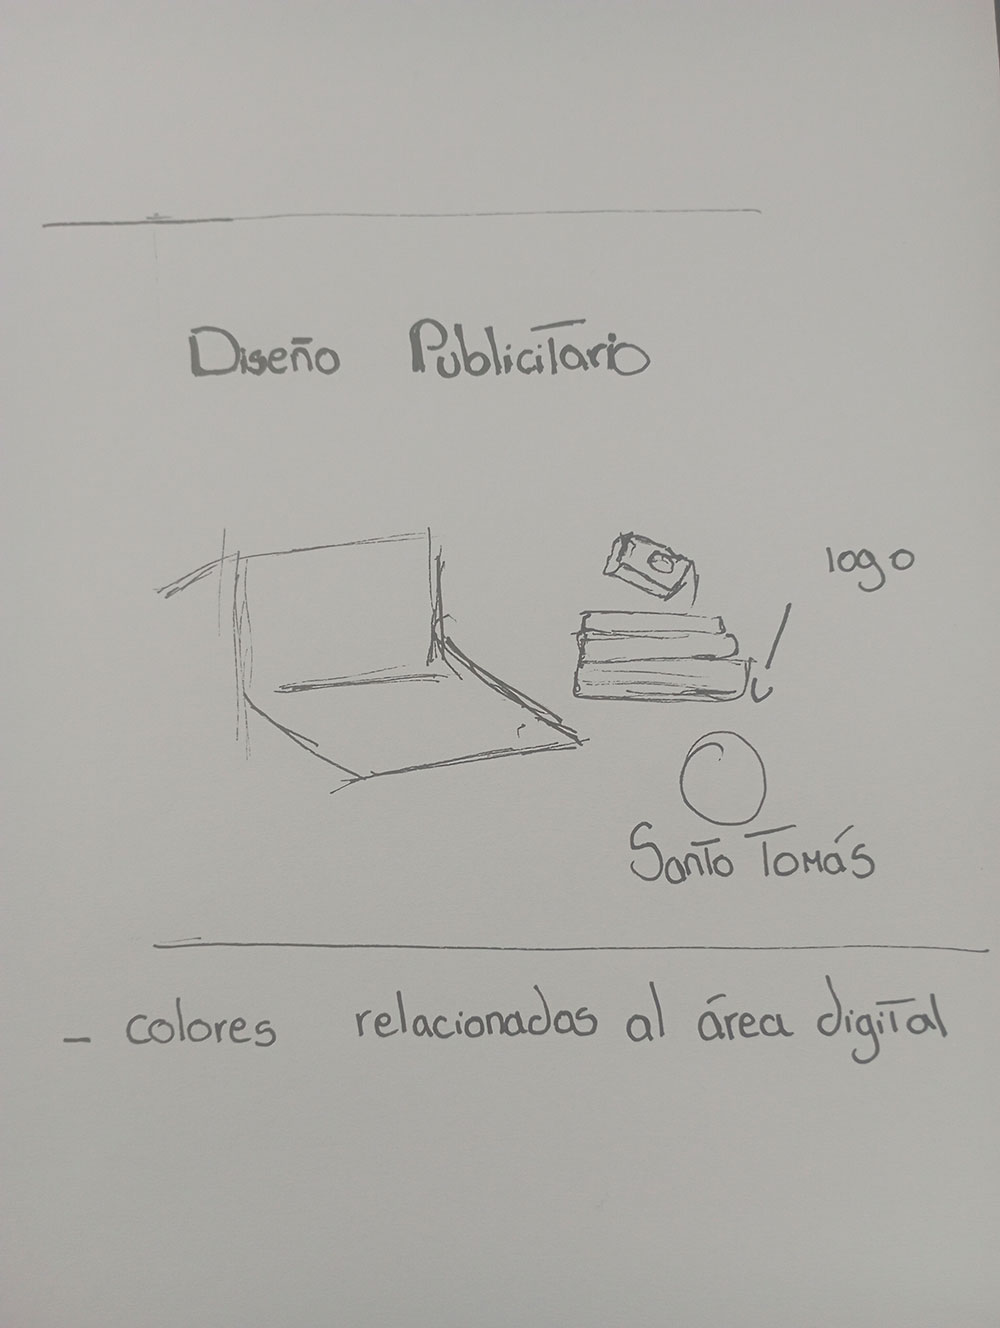 Diseño Publicitario
logo
Santo Tomás
- colores relacionados al área digital